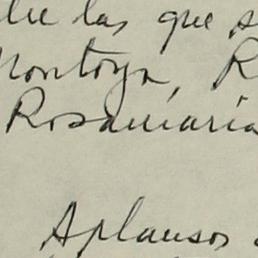 las que s
Montoya, R
Rosamaria
Aplausos